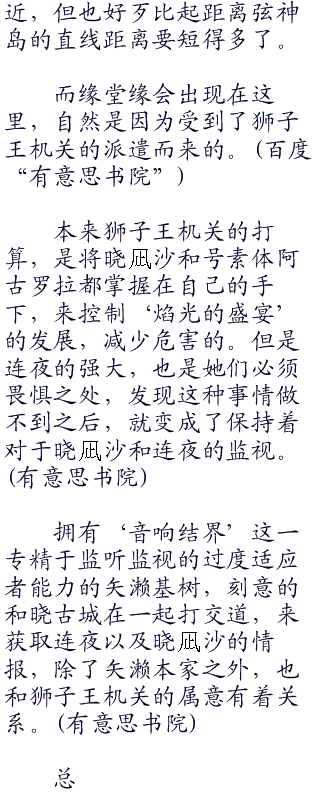 近，但也好歹比起距离弦神
岛的直线距离要短得多了。
而缘堂缘会出现在这
里，自然是因为受到了狮子
王机关的派遣而来的。(百度
“有意思书院”)
本来狮子王机关的打
算，是将晓凪沙和号素体阿
古罗拉都掌握在自己的手
下，来控制‘焰光的盛宴’
的发展，减少危害的。但是
连夜的强大，也是她们必须
畏惧之处，发现这种事情做
不到之后，就变成了保持着
对于晓凪沙和连夜的监视。
(有意思书院)
拥有‘音响结界’这一
专精于监听监视的过度适应
者能力的矢濑基树，刻意的
和晓古城在一起打交道，来
获取连夜以及晓凪沙的情
报，除了矢濑本家之外，也
和狮子王机关的属意有着关
系。(有意思书院)
总